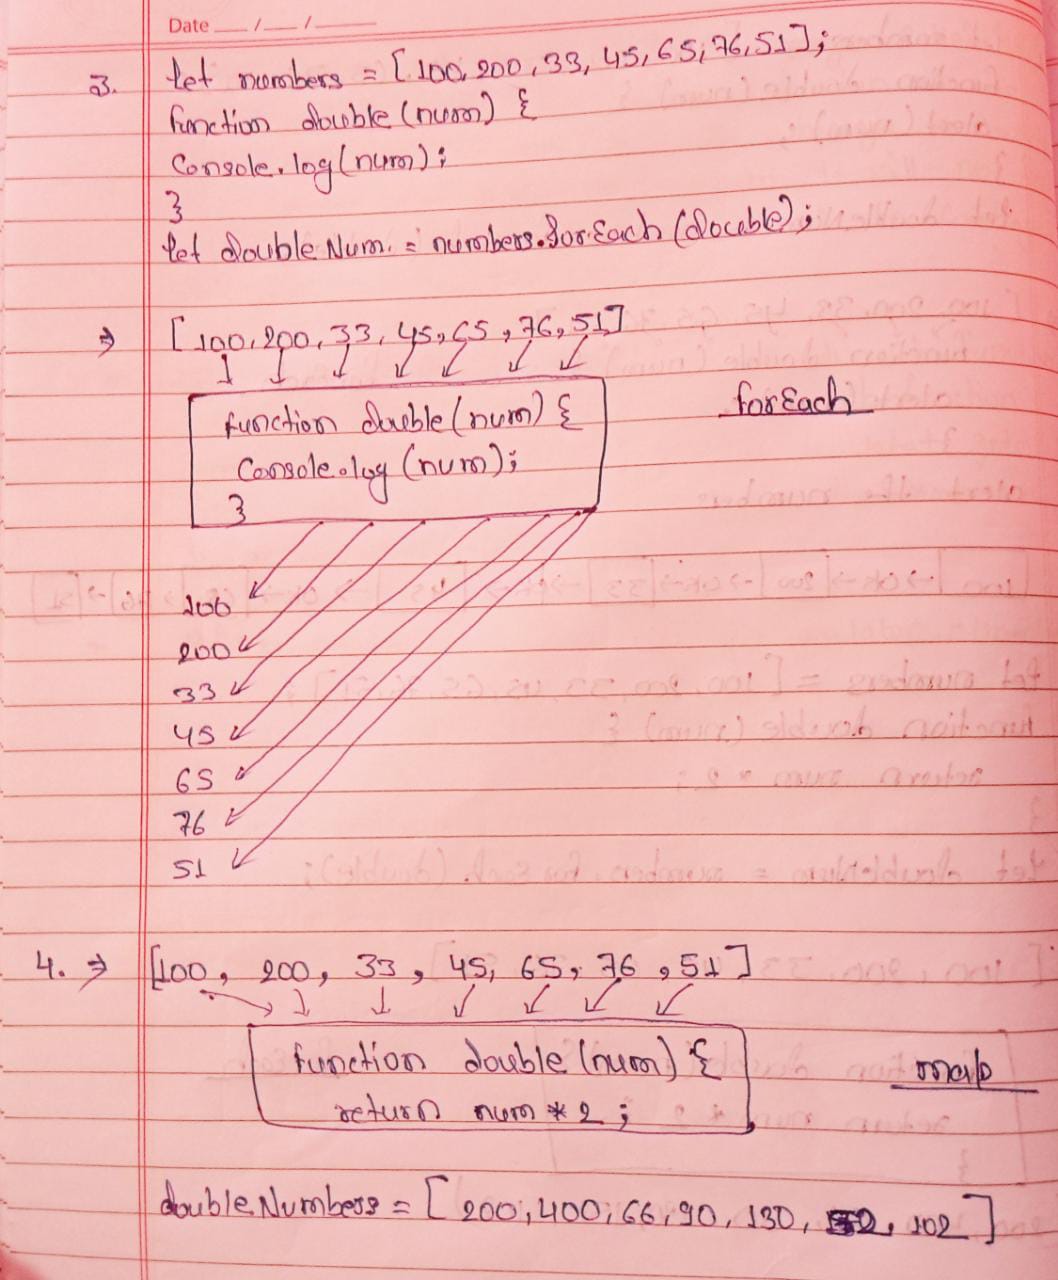 Date __/__/____
3. let numbers = [100, 200, 33, 45, 65, 76, 51];
function double (num) {
Console.log(num);
}
let double Num. = numbers.forEach (double);
⇒ [100, 200, 33, 45, 65, 76, 51]
function double (num) {
Console.log (num);
}
forEach
100
200
33
45
65
76
51
4. ⇒ [100, 200, 33, 45, 65, 76, 51]
function double (num) {
return num * 2;
map
doubleNumbers = [200, 400, 66, 90, 130, 102]